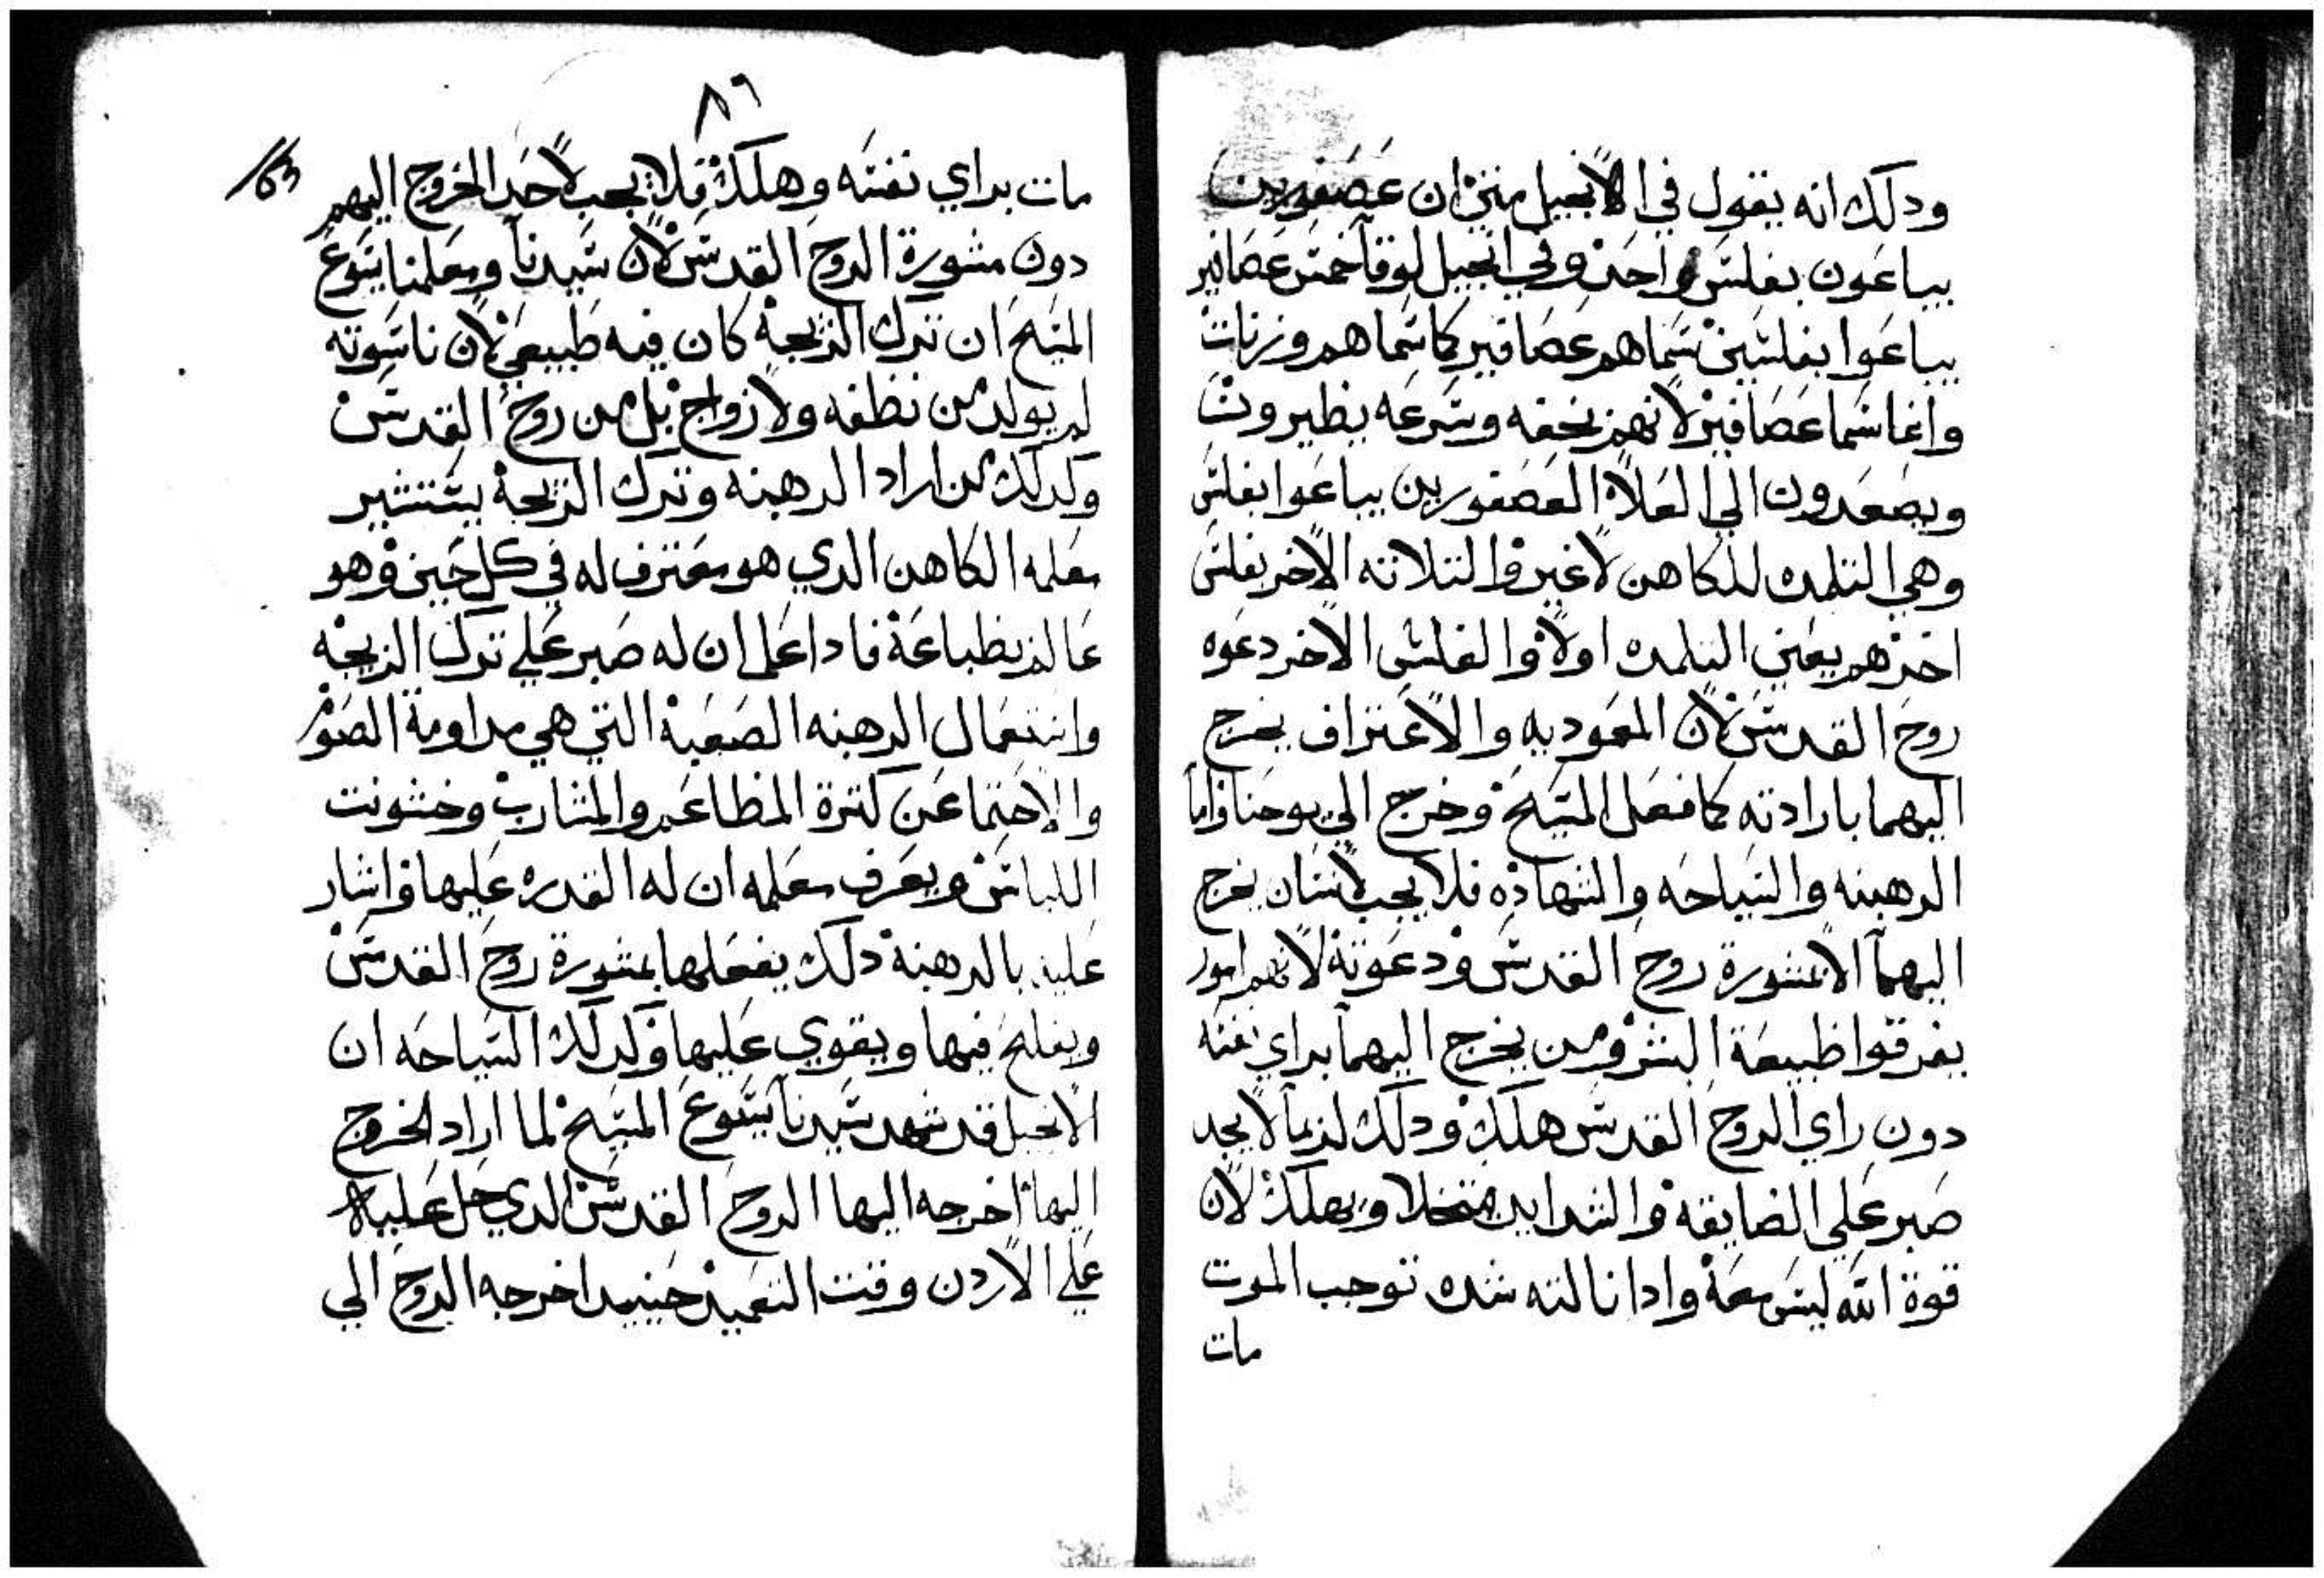 ودلك انه يقول في الانجيل متي ان عصفورين
يباعون بفلس واحد وفي انجيل لوقا خمس عصافير
يباعوا بفلسين سماهم عصافير كما سماهم وزنات
وانما سما عصافير لانهم بخفه وسرعه يطيرون
ويصعدون الي العلاه العصفورين يباعوا بفلس
وهي التلمده للكاهن لاغير والتلاته الاخر بفلس
اخدهم يعني التلمده اولا والفلس الاخر دعوه
روح القدس لان المعموديه والاعتراف يخرج
اليهما بارادته كما فعل المسيح وخرج الي يوحنا واما
الرهبنه والسياحه والشهاده فلا يجب لانسان يخرج
اليهما الا بمشورة روح القدس ودعوته لانهم امور
يفرقوا طبيعة البشر ومن يخرج اليهما براي نفسه
دون راي الروح القدس هلك ودلك لربما لا يجد
صبر علي الضايقه والشدايد ويهلك لان
قوة الله ليس معه وادا نالته شده توجب الموت
مات
٨٦
مات براي نفسه وهلك فلا يجب لاحد الخروج اليهم
دون مشورة الروح القدس لان سيدنا ومعلمنا يسوع
المسيح ان ترك الزيجه كان فيه طبيعي لان ناسوته
لم يولد من نطفه ولا زواج بل من روح القدس
وكدلك من اراد الرهبنه وترك الزيجة يستشير
معلمه الكاهن الدي هو معترف له في كل حين وهو
عالم بطباعة فادا علم ان له صبر علي ترك الزيجه
واستعمال الرهبنه الصعبة التي هي مداومة الصوم
والاحتما عن كترة المطاعم والمشارب وخشونت
اللباس ويعرف معلمه ان له القدره عليها واشار
عليه بالرهبنة دلك يفعلها بمشورة روح القدس
ويفلح فيها ويقوي عليها وكدلك السياحه ان
الانجيل قد شهد سيدنا يسوع المسيح لما اراد الخروج
اليها اخرجه اليها الروح القدس الدي حل عليه
علي الاردن وقت التعميد حينيد اخرجه الروح الي